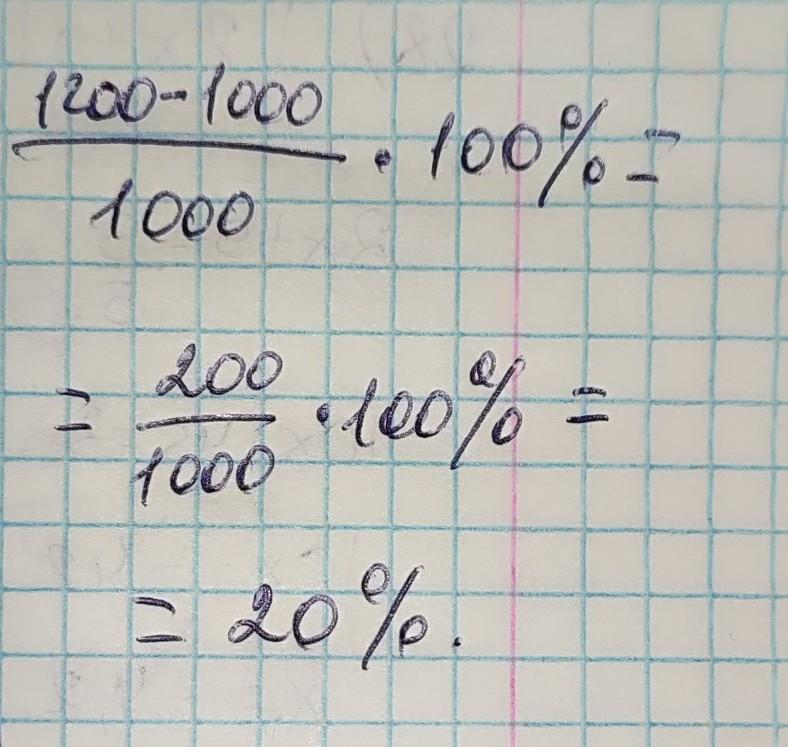 1200-1000
1000
· 100% =
= 200
1000
· 100% =
= 20%.